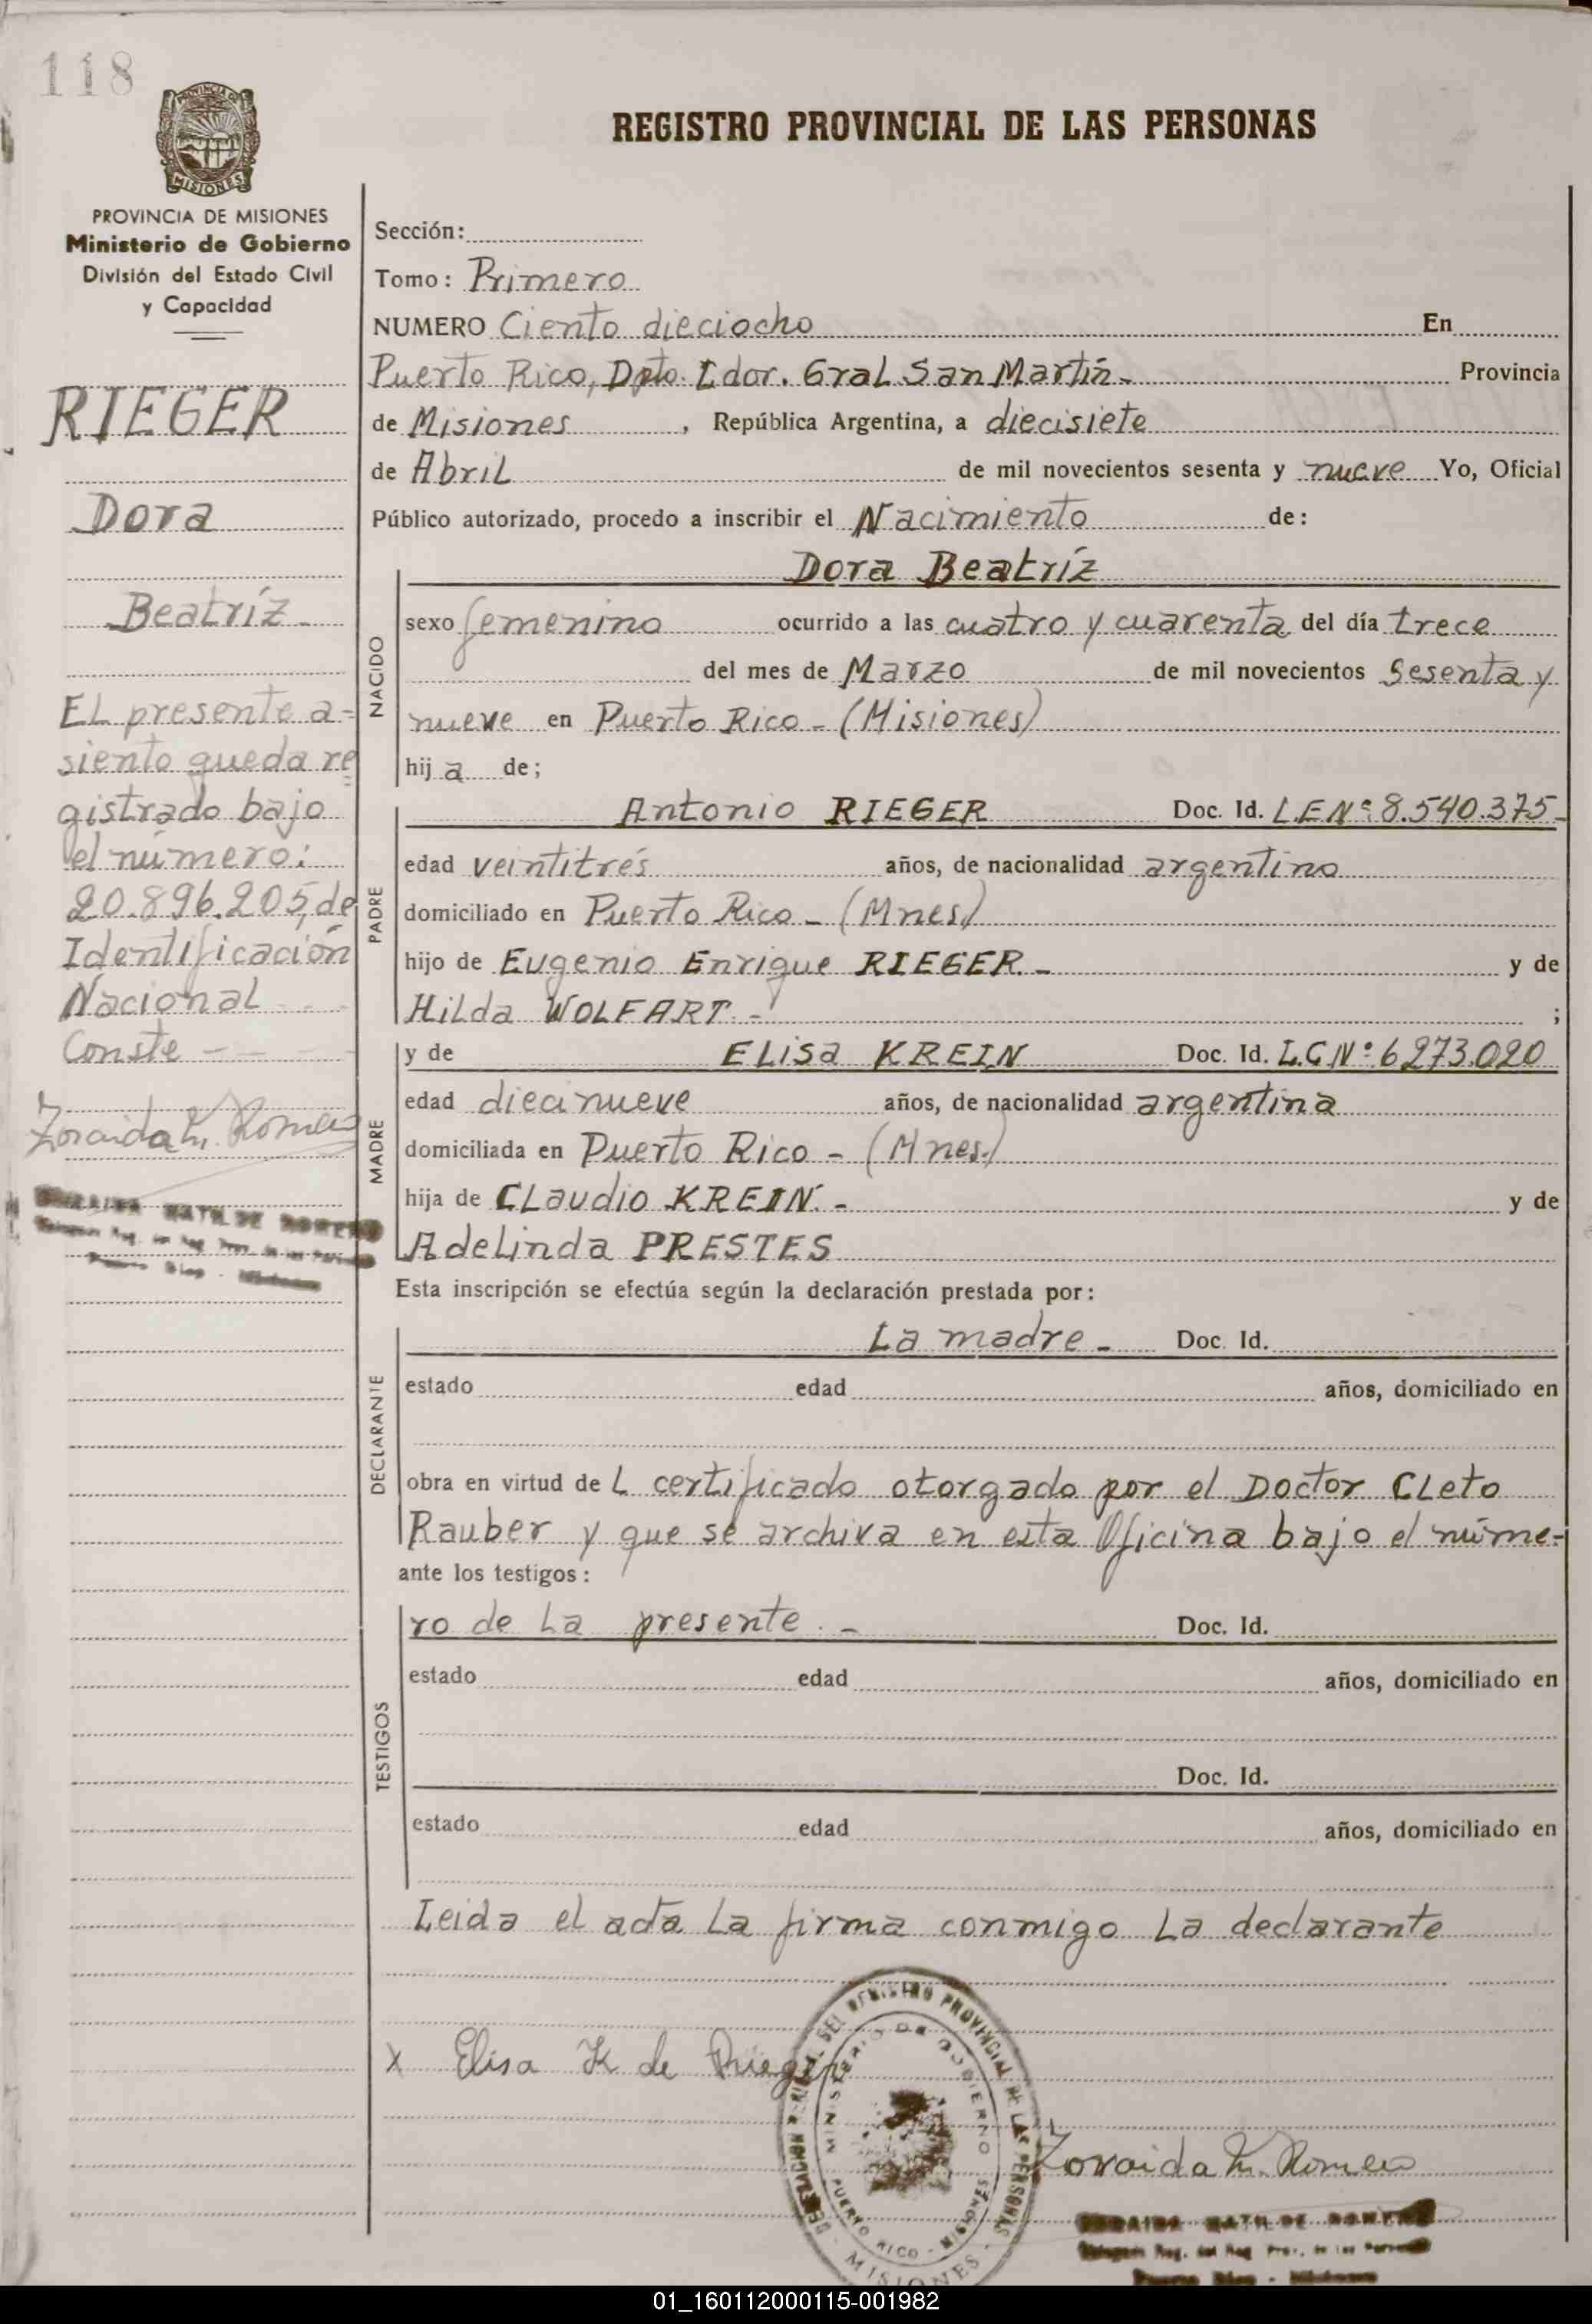 118
PROVINCIA DE
MISIONES
REGISTRO PROVINCIAL DE LAS PERSONAS
PROVINCIA DE MISIONES
Ministerio de Gobierno
División del Estado Civil
y Capacidad
RIEGER
Dora
Beatríz
El presente a-
siento queda re
gistrado bajo
el número:
20.896.205, de
Identificación
Nacional
Conste
Zoraida M. Romero
ZORAIDA MATILDE ROMERO
Puerto Rico - Misiones
Sección:
Tomo: Primero
NUMERO Ciento dieciocho En
Puerto Rico, Dpto. Ldor. Gral San Martín - Provincia
de Misiones, República Argentina, a diecisiete
de Abril de mil novecientos sesenta y nueve Yo, Oficial
Público autorizado, procedo a inscribir el Nacimiento de:
Dora Beatríz
NACIDO
sexo femenino ocurrido a las cuatro y cuarenta del día trece
del mes de Marzo de mil novecientos sesenta y
nueve en Puerto Rico - (Misiones)
hija de;
PADRE
Antonio RIEGER Doc. Id. L.E Nº 8.540.375-
edad veintitrés años, de nacionalidad argentino
domiciliado en Puerto Rico - (Mnes.)
hijo de Eugenio Enrique RIEGER - y de
Hilda WOLFART - ;
MADRE
y de Elisa KREIN Doc. Id. L.C Nº 6273.020
edad diecinueve años, de nacionalidad argentina
domiciliada en Puerto Rico - (Mnes.)
hija de Claudio KREIN. - y de
Adelinda PRESTES
Esta inscripción se efectúa según la declaración prestada por:
DECLARANTE
La madre - Doc. Id.
estado edad años, domiciliado en
obra en virtud de L certificado otorgado por el Doctor Cleto
Rauber y que se archiva en esta Oficina bajo el núme-
ante los testigos:
TESTIGOS
ro de la presente. - Doc. Id.
estado edad años, domiciliado en
Doc. Id.
estado edad años, domiciliado en
Leida el acta la firma conmigo la declarante
X Elisa K de Rieger
DEL REGISTRO PROVINCIAL DE LAS PERSONAS
MINISTERIO DE GOBIERNO
PUERTO RICO - MISIONES
MISIONES
Zoraida M. Romero
ZORAIDA MATILDE ROMERO
Puerto Rico - Misiones
01_160112000115-001982